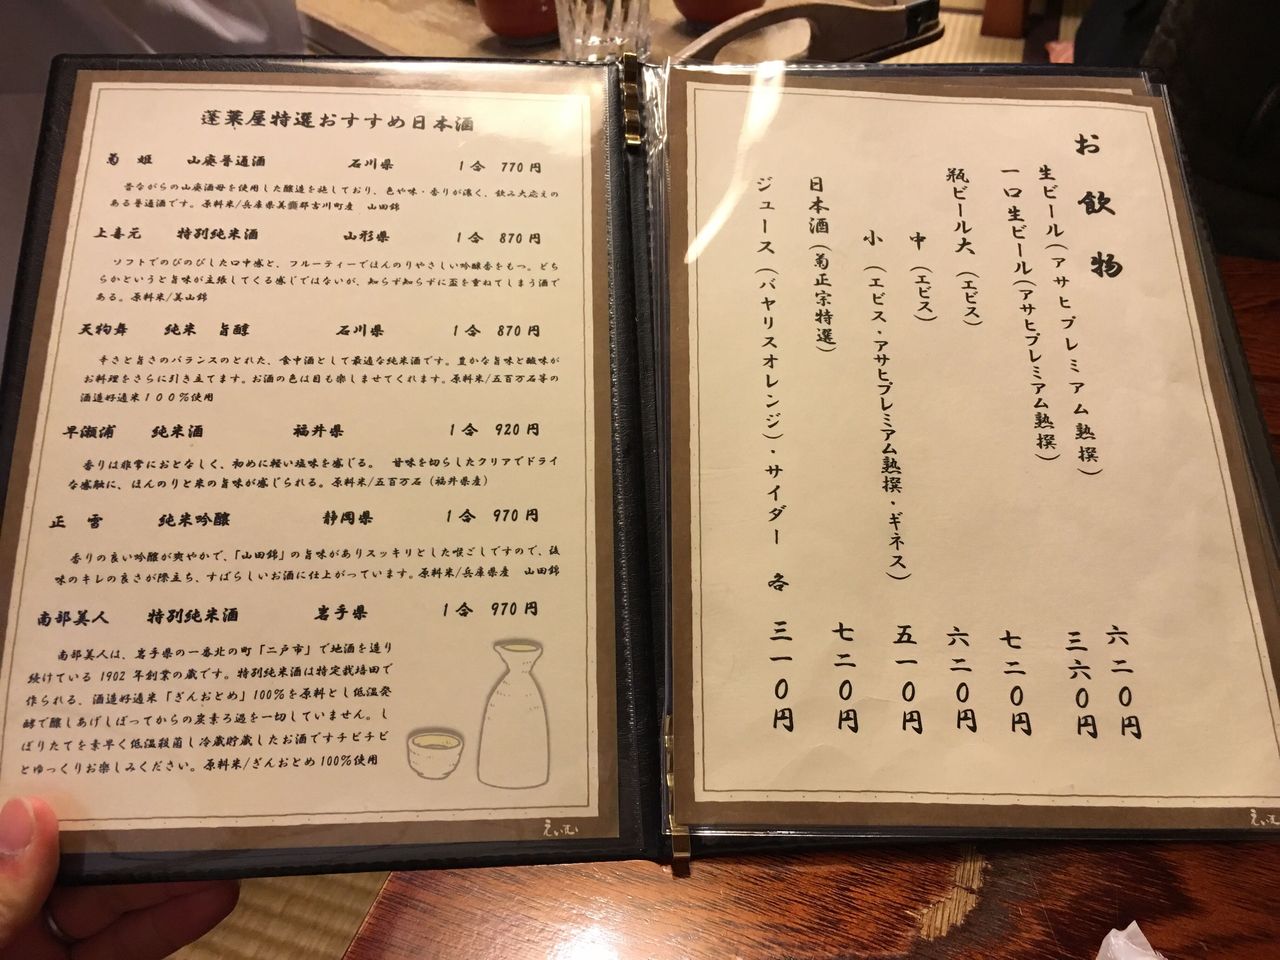 蓬莱屋特選おすすめ日本酒
菊 姫 山廃普通酒 石川県 1合 770円
昔ながらの山廃酒母を使用した醸造を施しており、色や味・香りが濃く、飲み大応えの
ある普通酒です。原料米/兵庫県美嚢郡吉川町産 山田錦
上喜元 特別純米酒 山形県 1合 870円
ソフトでのびのびした口中感と、フルーティーでほんのりやさしい吟醸香をもつ。どち
らかというと旨味が主張してくる感じではないが、知らず知らずに盃を重ねてしまう酒で
ある。原料米/美山錦
天狗舞 純米 旨醇 石川県 1合 870円
辛さと旨さのバランスのとれた、食中酒として最適な純米酒です。豊かな旨味と酸味が
お料理をさらに引き立てます。お酒の色は目も楽しませてくれます。原料米/五百万石等の
酒造好適米100%使用
早瀬浦 純米酒 福井県 1合 920円
香りは非常におとなしく、初めに軽い塩味を感じる。 甘味を切らしたクリアでドライ
な感触に、ほんのりと米の旨味が感じられる。原料米/五百万石(福井県産)
正 雪 純米吟醸 静岡県 1合 970円
香りの良い吟醸が爽やかで、「山田錦」の旨味がありスッキリとした喉ごしですので、後
味のキレの良さが際立ち、すばらしいお酒に仕上がっています。原料米/兵庫県産 山田錦
南部美人 特別純米酒 岩手県 1合 970円
南部美人は、岩手県の一番北の町「二戸市」で地酒を造り
続けている1902年創業の蔵です。特別純米酒は特定栽培田で
作られる、酒造好適米「ぎんおとめ」100%を原料とし低温発
酵で醸しあげしぼってからの炭素ろ過を一切していません。し
ぼりたてを素早く低温殺菌し冷蔵貯蔵したお酒ですチビチビ
とゆっくりお楽しみください。原料米/ぎんおとめ100%使用
えいむ
お飲物
生ビール(アサヒプレミアム熟撰) 六二〇円
一口生ビール(アサヒプレミアム熟撰) 三六〇円
瓶ビール大(エビス) 七二〇円
中(エビス) 六二〇円
小(エビス・アサヒプレミアム熟撰・ギネス) 五一〇円
日本酒(菊正宗特選) 七二〇円
ジュース(バヤリスオレンジ)・サイダー 各 三一〇円
えいむ